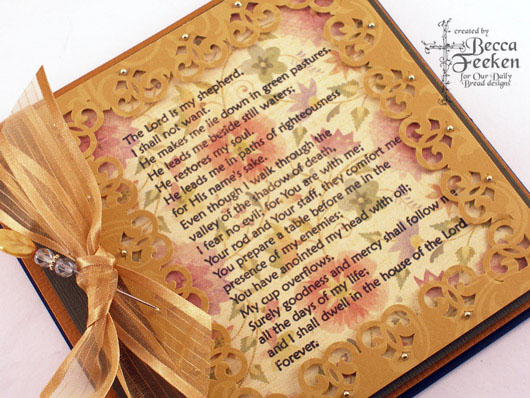 The Lord is my shepherd,
I shall not want.
He makes me lie down in green pastures.
He leads me beside still waters;
He restores my soul.
He leads me in paths of righteousness
for His name's sake.
Even though I walk through the
valley of the shadow of death,
I fear no evil; for You are with me;
Your rod and Your staff, they comfort me.
You prepare a table before me in the
presence of my enemies;
You have anointed my head with oil;
My cup overflows.
Surely goodness and mercy shall follow me
all the days of my life;
and I shall dwell in the house of the Lord
Forever.
created by
Becca
Feeken
for Our Daily
Bread designs